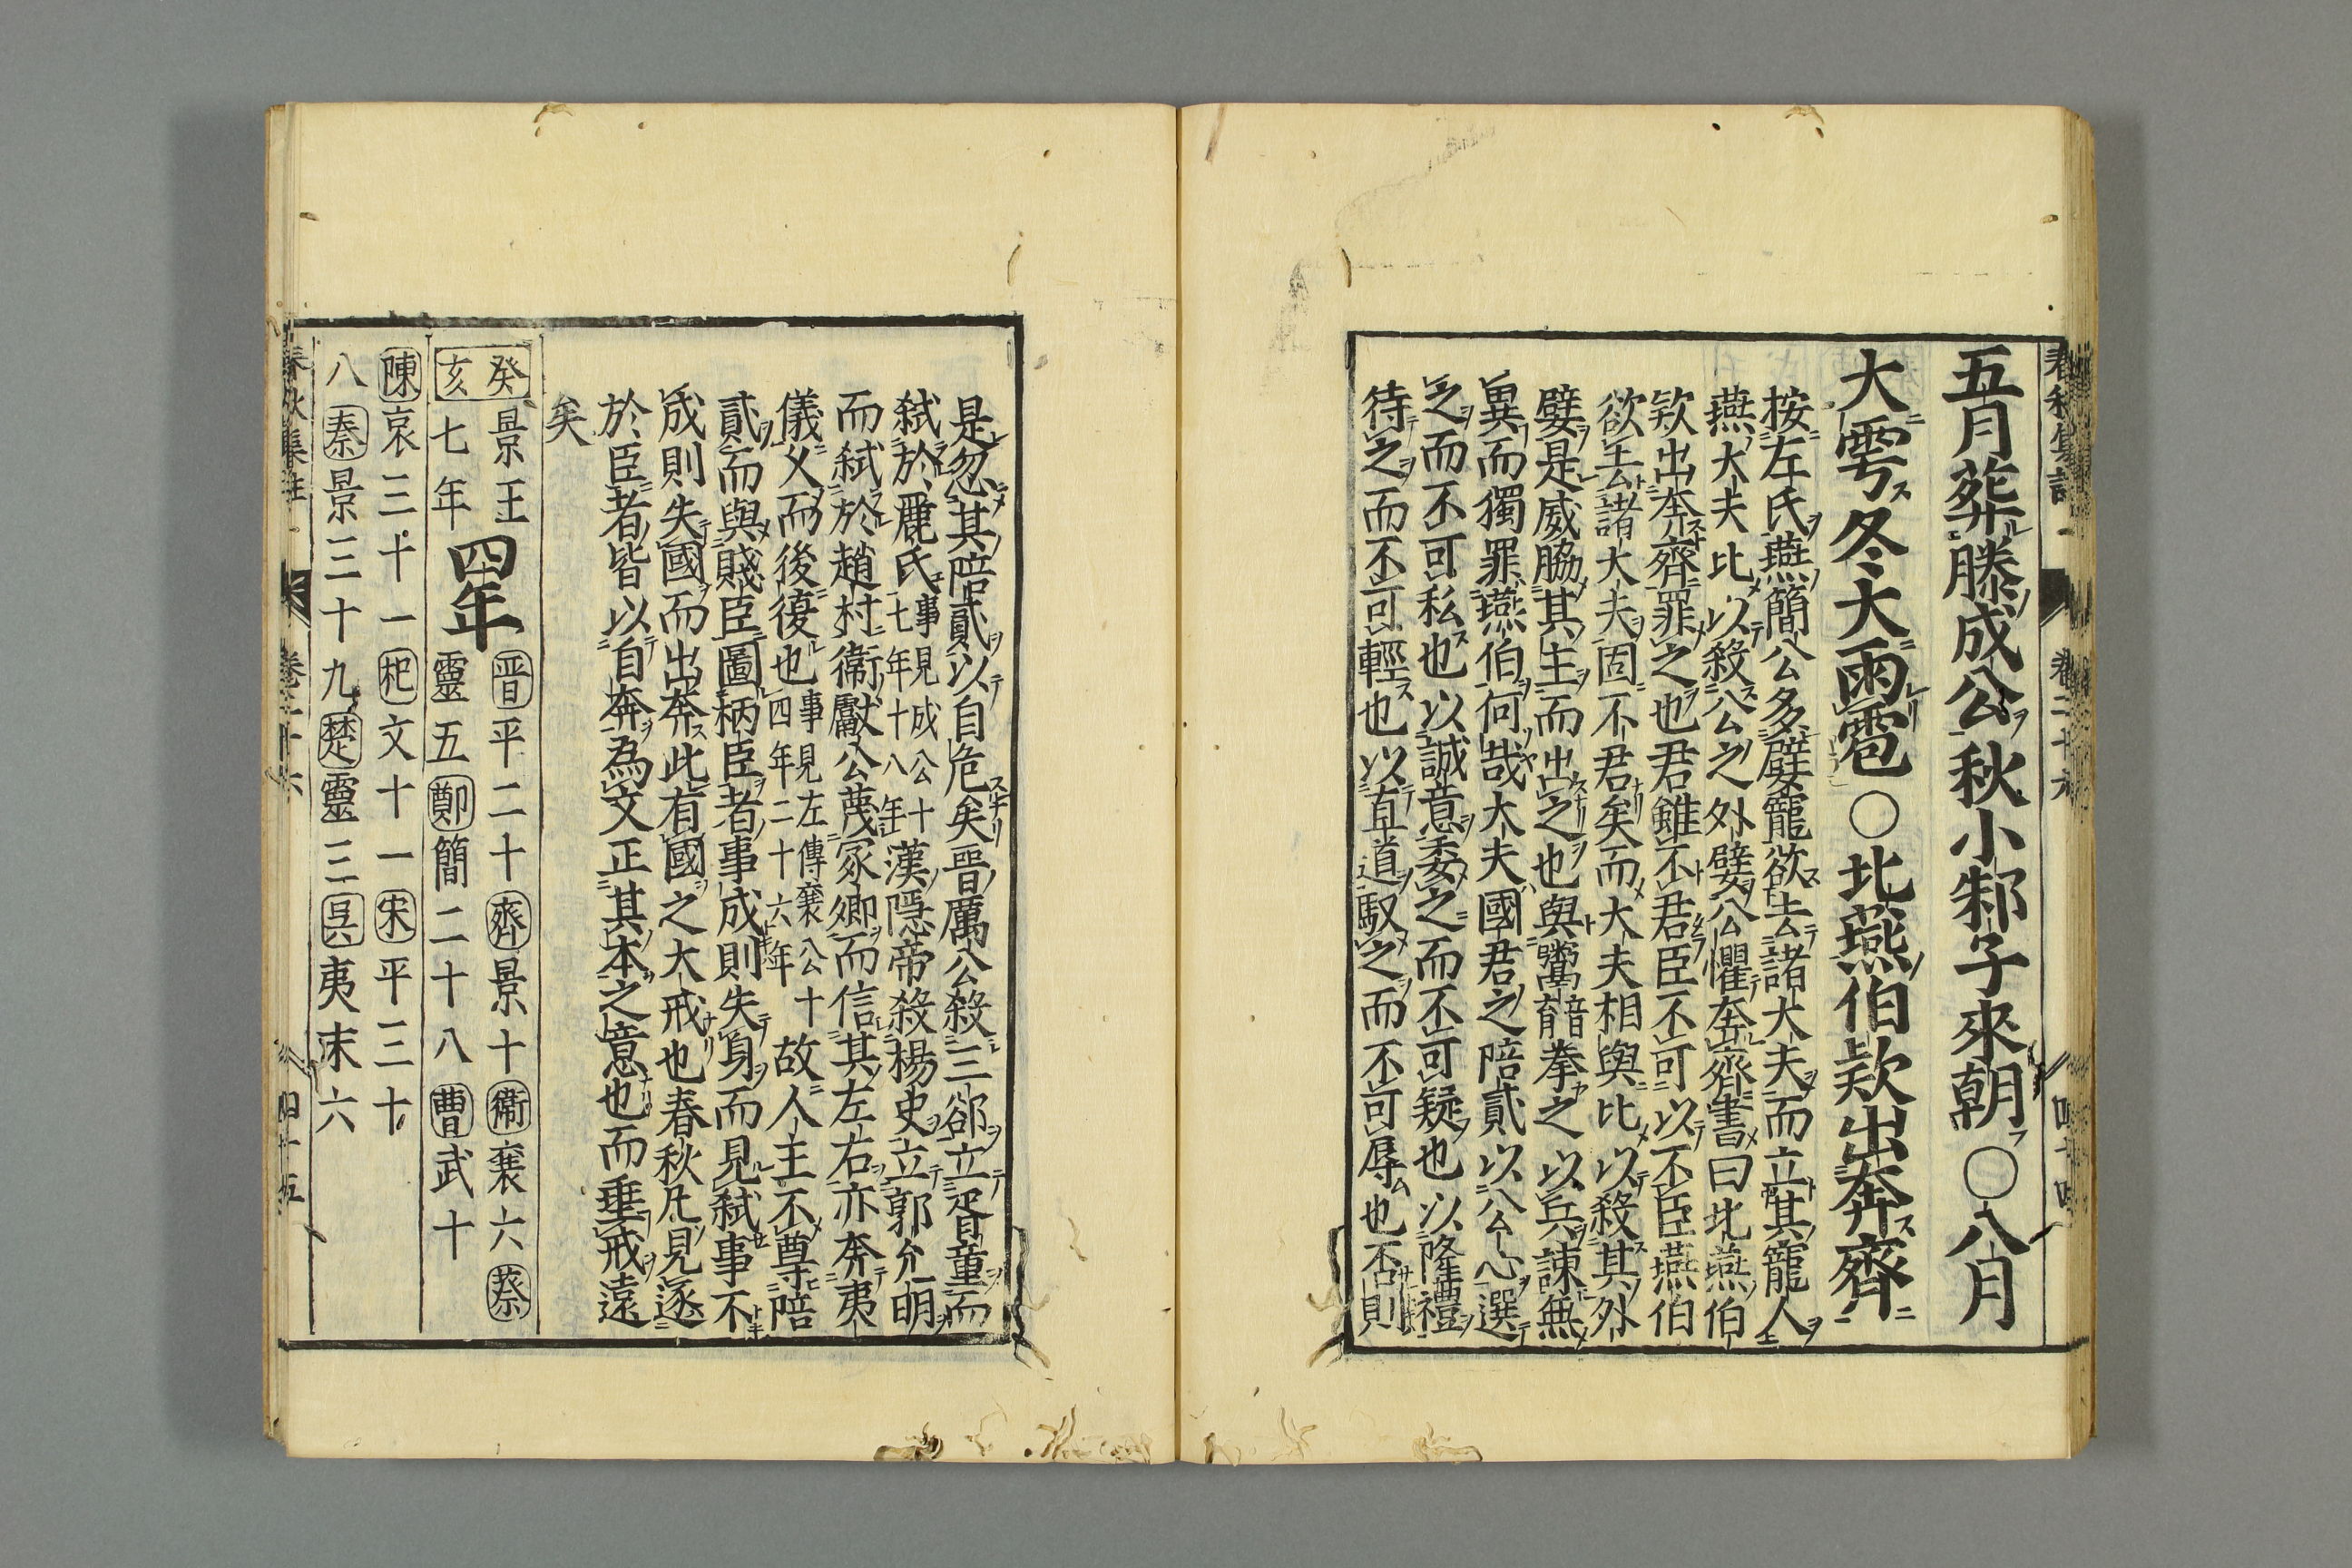 五月葬滕成公秋小邾子來朝○八月
大雩冬大雨雹○北燕伯款出奔齊
按左氏燕簡公多嬖寵欲去諸大夫而立其寵人
燕大夫比以殺公之外嬖公懼奔齊書曰北燕伯
款出奔齊罪之也君雖不君臣不可以不臣燕伯
欲去諸大夫固不君矣而大夫相與比以殺其外
嬖是威脇其主而出之也與鬻拳之以兵諫無
異而獨罪燕伯何哉大夫國君之陪貳以公心選
之而不可私也以誠意委之而不可疑也以隆禮
待之而不可輕也以直道馭之而不可辱也否則
是忽其陪貳以自危矣晋厲公殺三郤立胥童而
弑於麗氏事見成公十七年十八年漢隱帝殺楊史立郭允明
而弑於趙村衛獻公蔑冢卿而信其左右亦奔夷
儀乂而後復也事見左傳襄公十四年二十六年故人主不尊陪
貳而與賤臣圖柄臣者事成則失身而見弑事不
成則失國而出奔此有國之大戒也春秋凡見逐
於臣者皆以自奔為文正其本之意也而垂戒遠
矣
癸亥景王七年四年晋平二十齊景十衞襄六蔡靈五鄭簡二十八曹武十
陳哀三十一杞文十一宋平三十
八秦景三十九楚靈三吳夷末六